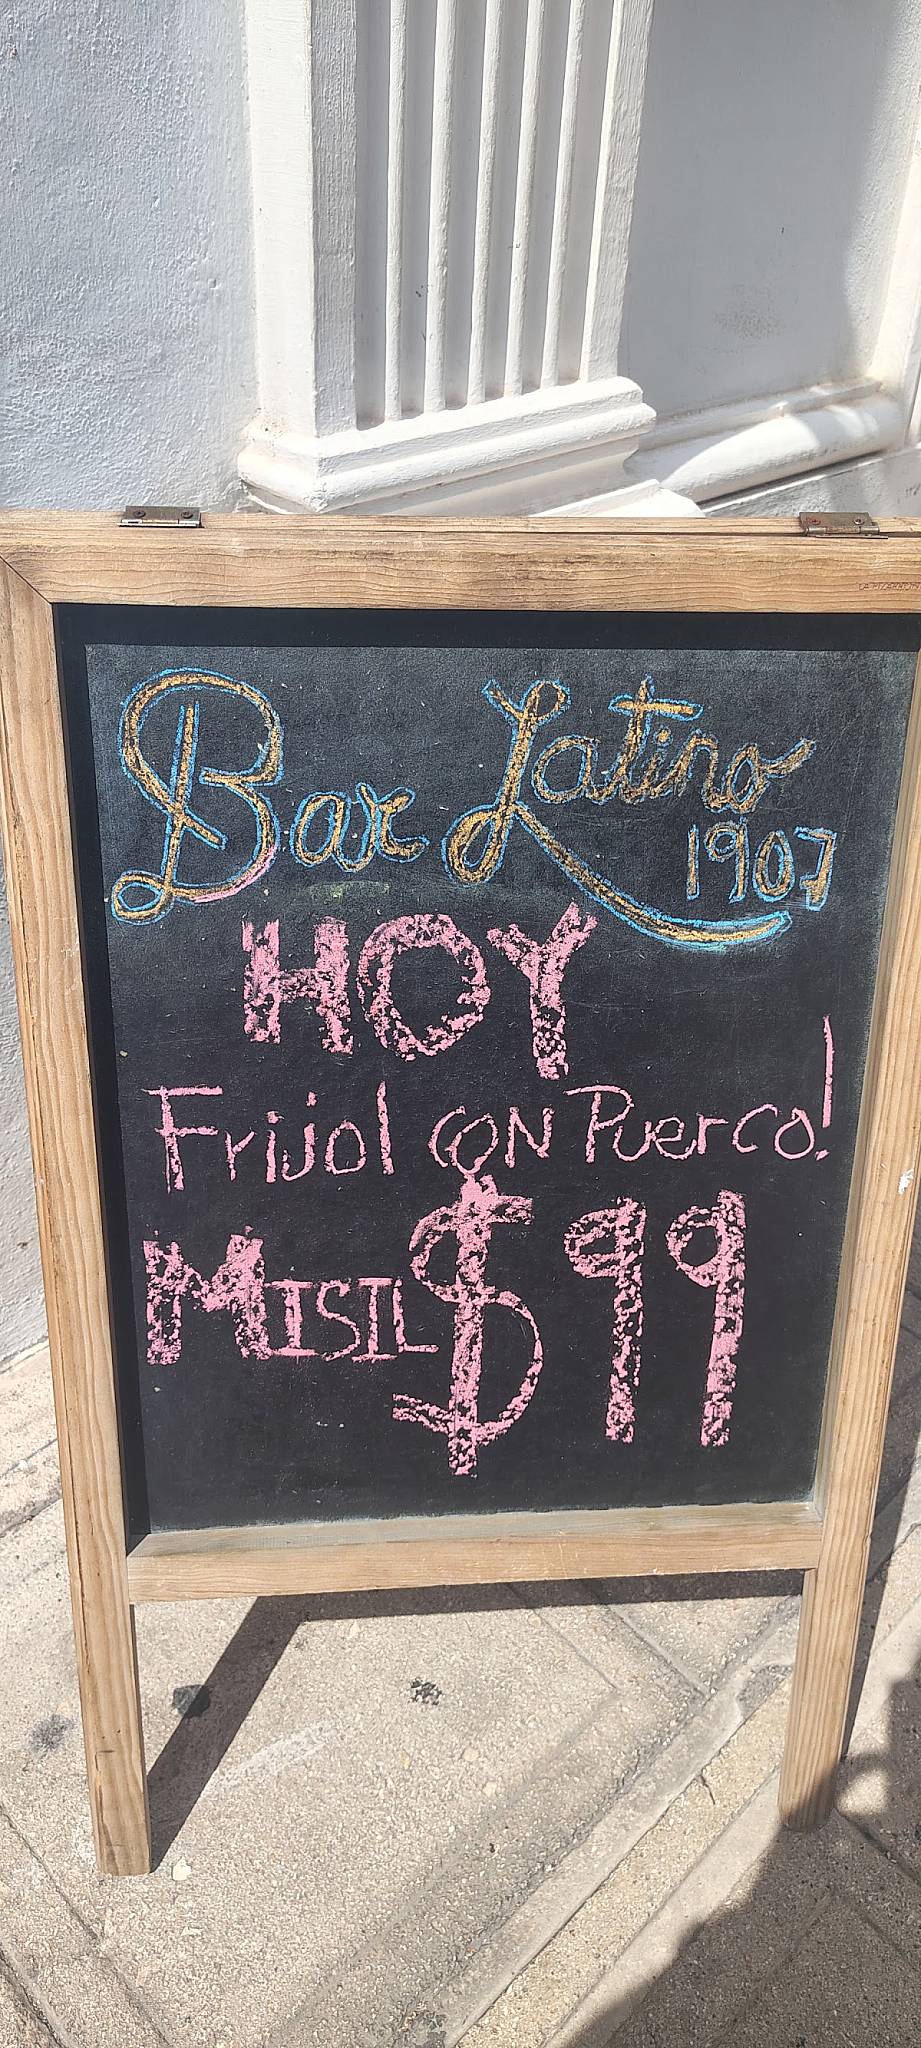 Bar Latino
1907
HOY
Frijol CON Puerco!
MISIL $99